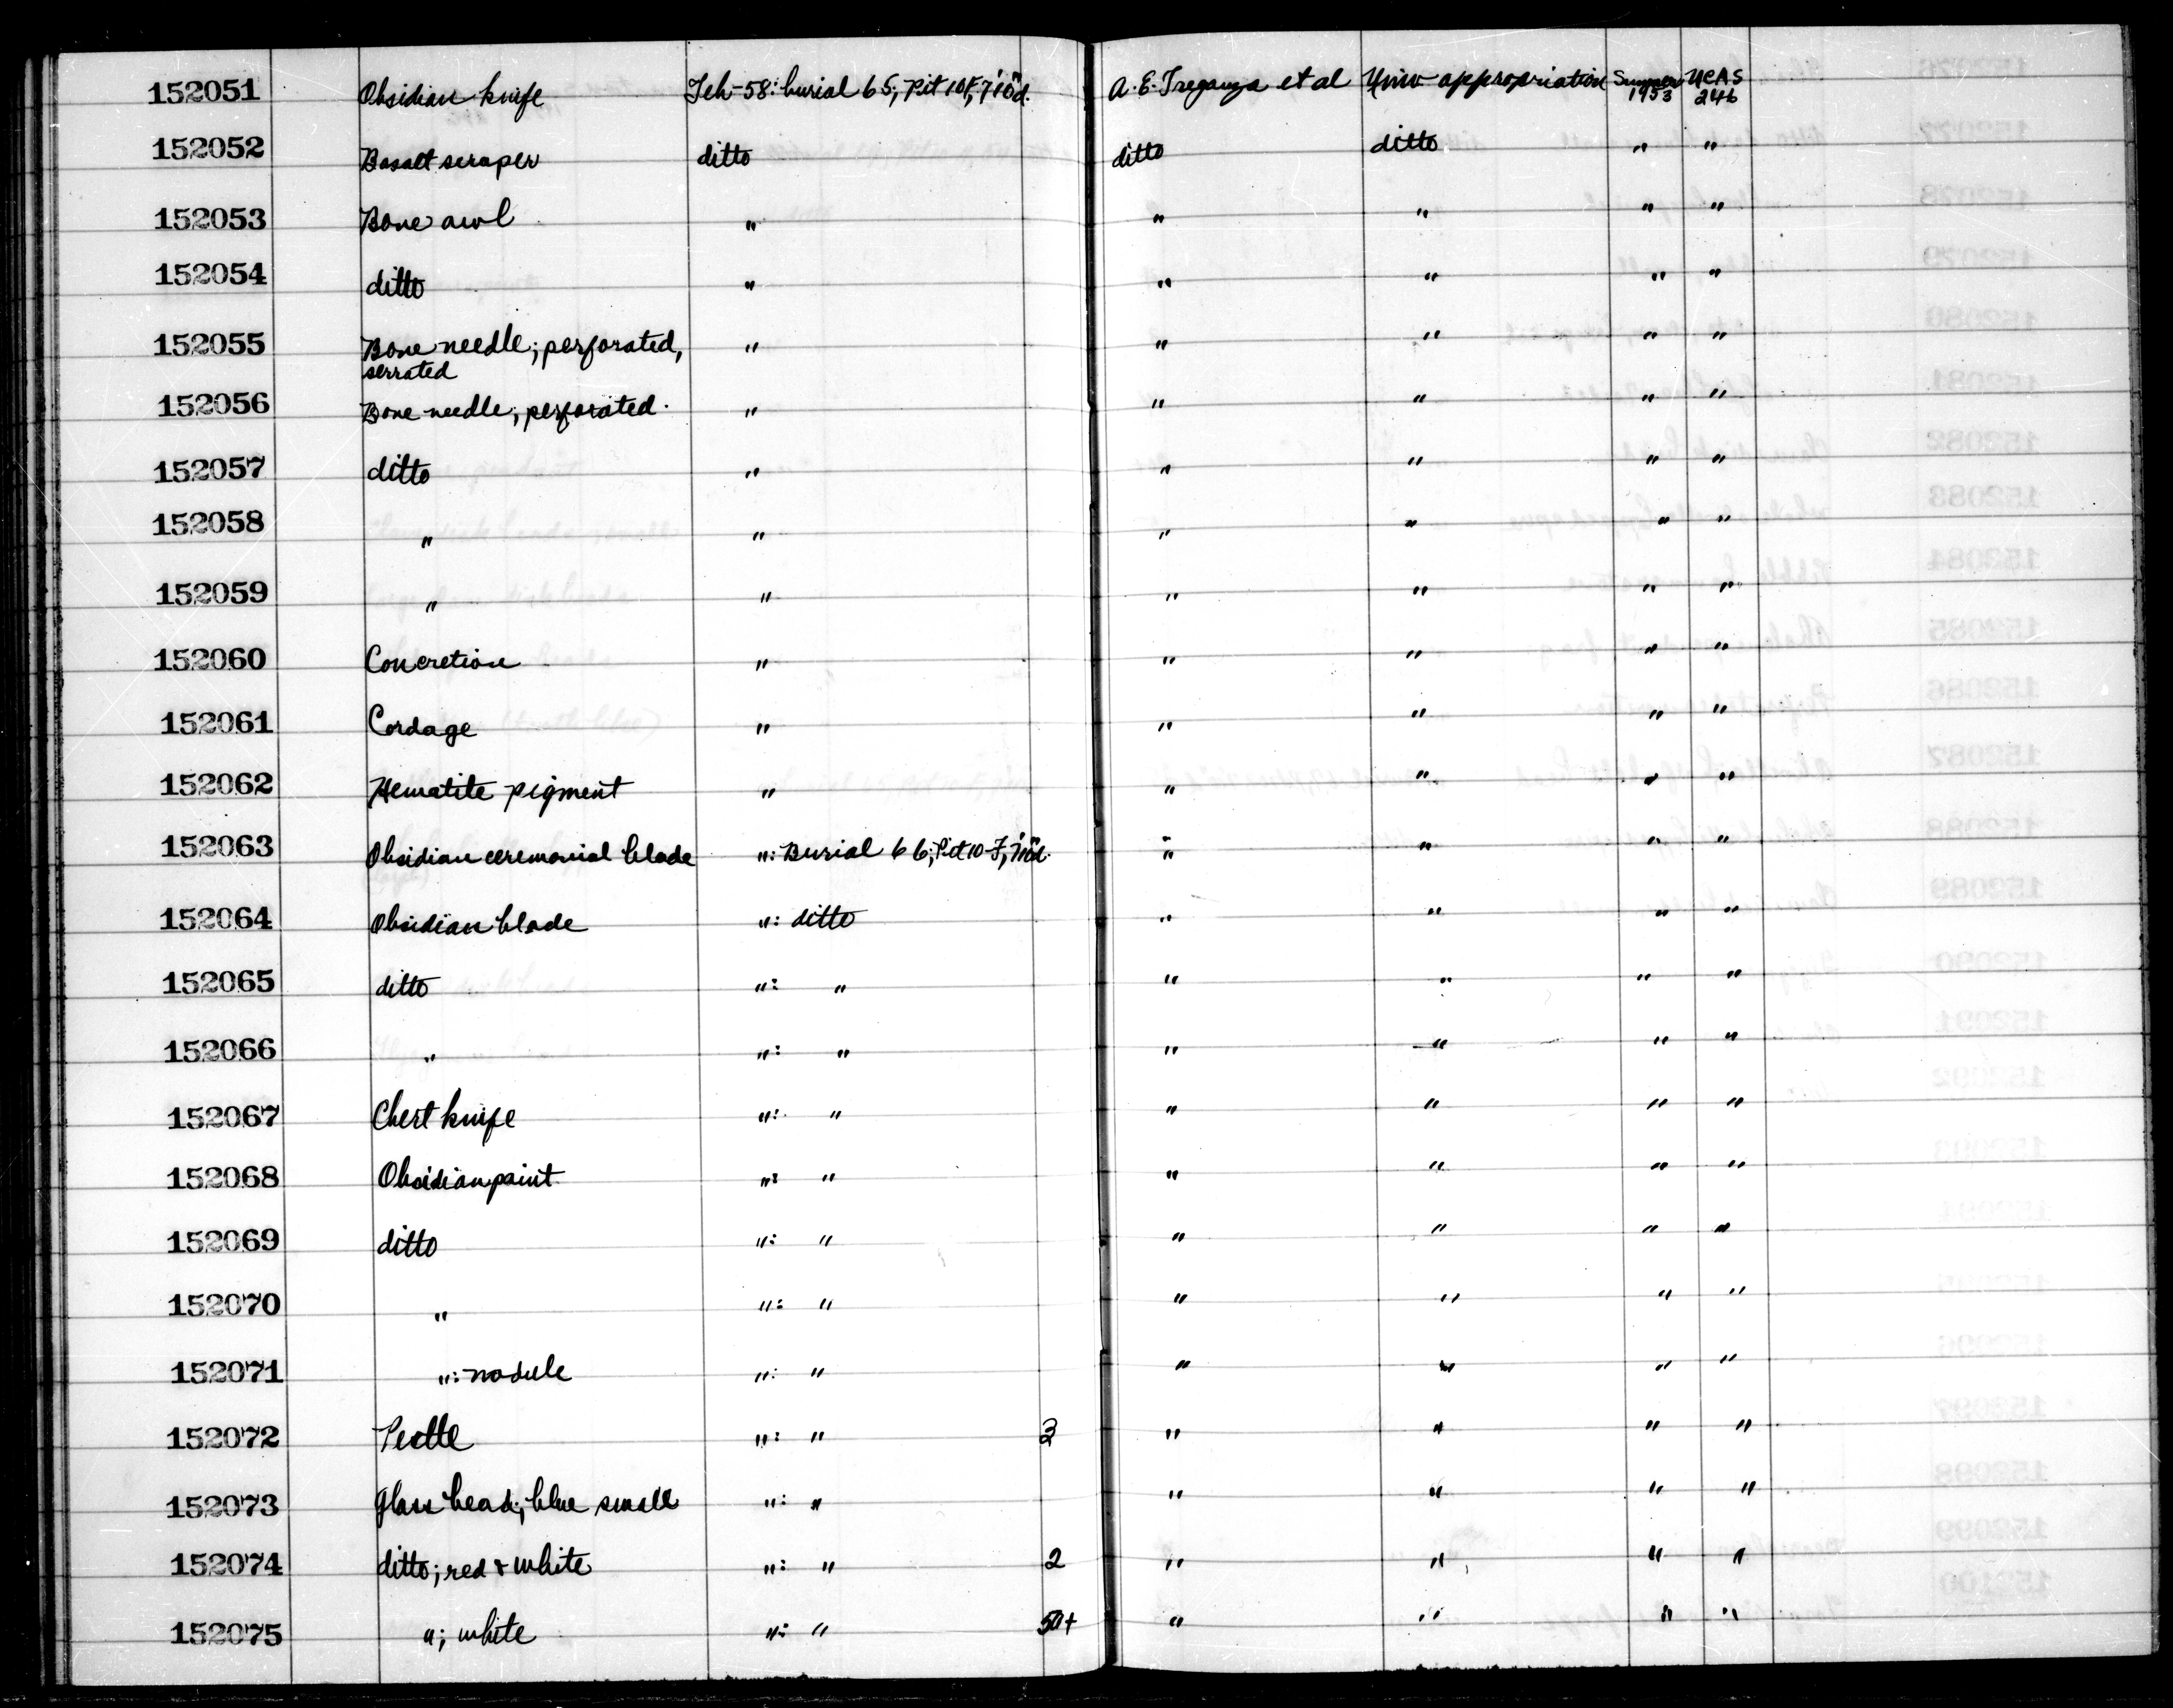 152051 Obsidian knife Teh-58: burial 65; Pit 10F, 7'10"d. A. E. Treganza et al Univ appropriation Summer 1953 UCAS 246
152052 Basalt scraper ditto ditto ditto " "
152053 Bone awl " " " " "
152054 ditto " " " " "
152055 Bone needle; perforated, " " " " "
serrated
152056 Bone needle; perforated. " " " " "
152057 ditto " " " " "
152058 " " " " " "
152059 " " " " " "
152060 Concretion " " " " "
152061 Cordage " " " " "
152062 Hematite pigment " " " " "
152063 Obsidian ceremonial blade ": Burial 66; Pit 10-F, 7'10"d. " " " "
152064 Obsidian blade ": ditto " " " "
152065 ditto ": " " " " "
152066 " ": " " " " "
152067 Chert knife ": " " " " "
152068 Obsidian point ": " " " " "
152069 ditto ": " " " " "
152070 " ": " " " " "
152071 ": nodule ": " " " " "
152072 Pestle ": " 3 " " " "
152073 Glass bead; blue small ": " " " " "
152074 ditto; red & white ": " 2 " " " "
152075 "; white ": " 50+ " " " "